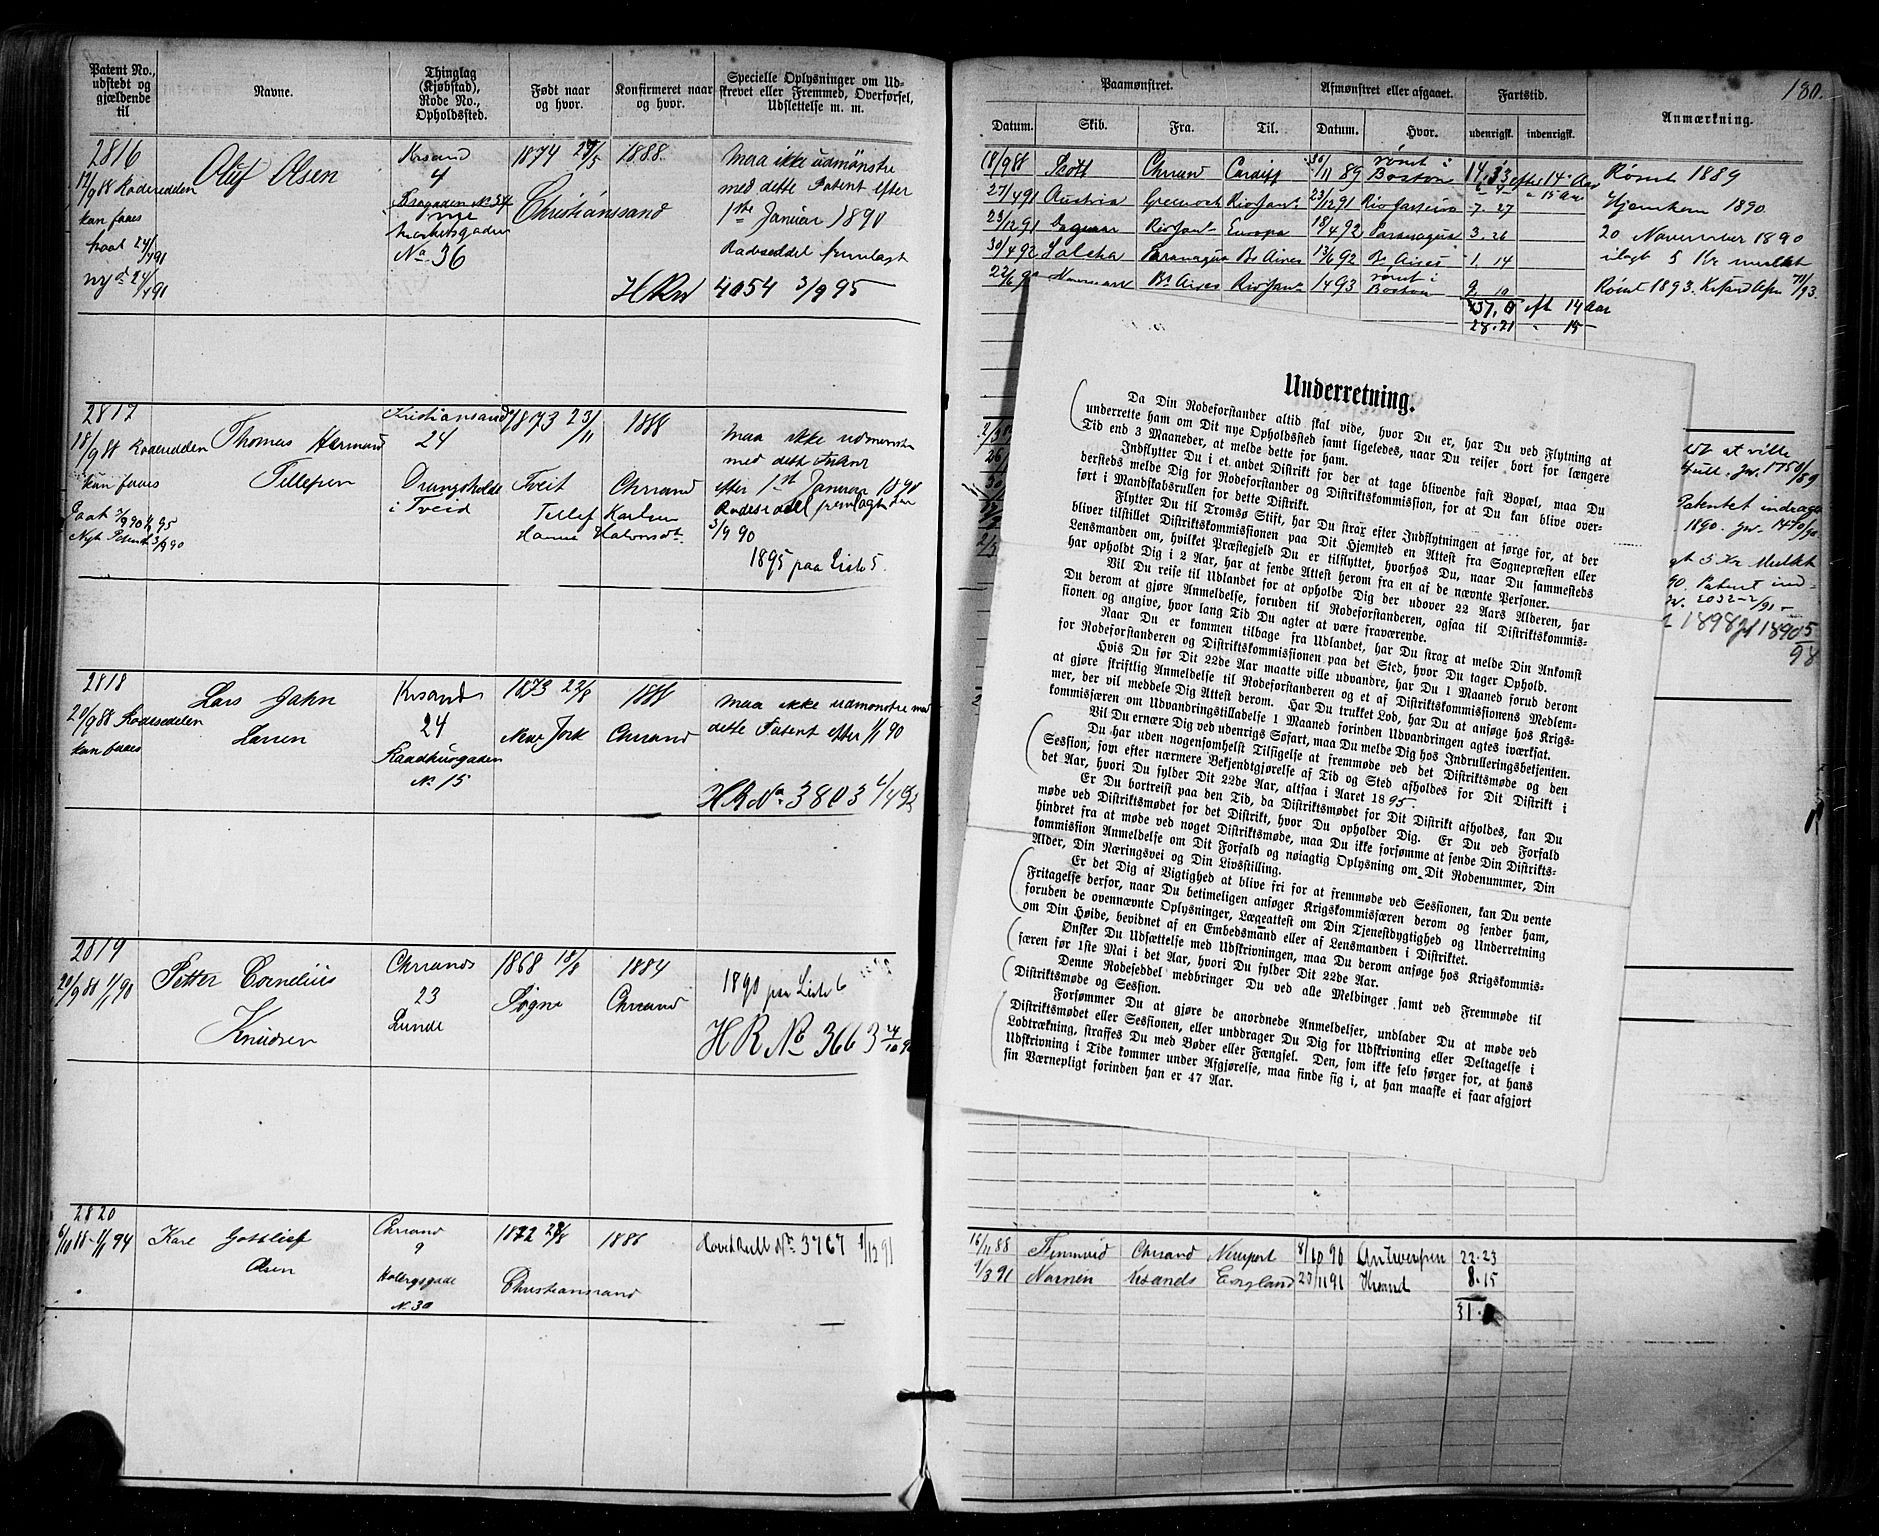 Patent No.,
udstedt og
gjældende
til
Navne.
Thinglag
(Kjøbstad),
Rode No.,
Opholdssted.
Født naar
og hvor.
Konfirmeret naar
og hvor.
Specielle Oplysninger om Ud-
skrevet eller Fremmed, Overførsel,
Udslettelse m. m.
2816
Oluf Olsen
Krsand
4
No 36
1874 29/5
Christianssand
1888.
Maa ikke udmønstre
med dette Patent efter
1ste Januar 1890
Rodeseddel fremlagt
HRN 4054 3/9 95
kan faaes
2817
18/9 88 Rodesedelen
kan faaes
Thomas Herman
Tellefsen
Kristiansand
24
Drangsholdt
i Tveid
1873 23/11
Tveit
Tellef Karlsen
1888
Chrsand
Maa ikke udmønstre
med dette Patent
efter 1st Januar 1890
3/9 90
1895 paa Liste 5.
2818
20/9 88 Rodesedelen
kan faaes
Lars Jahn
Larsen
Krsand
24
Raadhusgaden
N. 15
1873 22/8
New York
1888
Chrsand
Maa ikke udmønstre med
dette Patent efter 1/1 90
HR No 3803
2819
20/9 88 1/1 90
Petter Cornelius
Knudsen
Chrsand
23
Lunde
1868 18/8
Søgne
1884
Chrsand
1890 paa Liste 6
HR No 3663
2820
6/10 88 - 1/1 94
Karl Gottlief
Olsen
Chrsand
9
Holbergsgade
N. 30
1872 28/8
Christianssand
1886
Hoved Rull No 3767 1/12 91
180.
Paamønstret.
Afmønstret eller afgaaet.
Fartstid.
Anmærkning.
Datum.
Skib.
Fra.
Til.
Datum.
Hvor.
udenrigsk.
indenrigsk.
18/9 88 Scott Chrsand Cardiff 30/11 89 rømt i Boston
27/4 91 Austria Greenock Rio Jan. 23/12 91 Rio Janeiro 7. 27
23/12 91 Dagmar Rio Jan. Europa 18/4 92 Paranagua 3. 26
30/4 92 Paranagua Bs Aires 13/6 92 Bs Aires 1. 14
Bs Aires Rio Jan. 1/4 93 rømt i Boston 9. 10
28.21
Rømt 1889
Hjemkom 1890
20 November 1890
ilagt 5 Kr mulkt
Rømt 1893.
Underretning.
Da Din Rodeforstander altid skal vide, hvor Du er, har Du ved Flytning at
underrette ham om Dit nye Opholdssted samt ligeledes, naar Du rejser bort for længere
Tid end 3 Maaneder, at melde dette for ham.
Indflytter Du i et andet Distrikt for der at tage blivende fast Bopæl, maa Du
dersteds melde Dig for Rodeforstander og Distriktskommission, for at Du kan blive over-
ført i Mandskabsrullen for dette Distrikt.
Flytter Du til Tromsø Stift, har Du strax efter Indflytningen at sørge for, at der
bliver tilstillet Distriktskommissionen paa Dit Hjemsted en Attest fra Sognepræsten eller
Lensmanden om, hvilket Præstegjeld Du er tilflyttet, hvorhos Du, naar Du sammesteds
har opholdt Dig i 2 Aar, har at sende Attest herom fra en af de nævnte Personer.
Vil Du reise til Udlandet for at opholde Dig der udover 22 Aars Alderen, har
Du derom at gjøre Anmeldelse, foruden til Rodeforstanderen, ogsaa til Distriktskommis-
sionen og angive, hvor lang Tid Du agter at være fraværende.
Naar Du er kommen tilbage fra Udlandet, har Du strax at melde Din Ankomst
for Rodeforstanderen og Distriktskommissionen paa det Sted, hvor Du tager Ophold.
Hvis Du før Dit 22de Aar maatte ville udvandre, har Du 1 Maaned forud derom
at gjøre skriftlig Anmeldelse til Rodeforstanderen og et af Distriktskommissionens Medlem-
mer, der vil meddele Dig Attest derom. Har Du trukket Lod, har Du at ansøge hos Krigs-
kommisæren om Udvandringstilladelse 1 Maaned forinden Udvandringen agtes iværksat.
Vil Du ernære Dig ved udenrigs Søfart, maa Du melde Dig hos Indrulleringsbetjenten.
Du har uden nogensomhelst Tilsigelse at fremmøde ved det Distriktsmøde og den
Session, som efter nærmere Bekjendtgjørelse af Tid og Sted afholdes for Dit Distrikt i
det Aar, hvori Du fylder Dit 22de Aar, altsaa i Aaret 1895
Er Du bortreist paa den Tid, da Distriktsmødet for Dit Distrikt afholdes, kan Du
møde ved Distriktsmødet for det Distrikt, hvor Du opholder Dig. Er Du ved Forfald
hindret fra at møde ved noget Distriktsmøde, maa Du ikke forsømme at sende Din Distrikts-
kommission Anmeldelse om Dit Forfald og nøiagtig Oplysning om Dit Rodenummer, Din
Alder, Din Næringsvei og Din Livsstilling.
Er det Dig af Vigtighed at blive fri for at fremmøde ved Sessionen, kan Du vente
Fritagelse derfor, naar Du betimeligen ansøger Krigskommisæren derom og sender ham,
foruden de ovennævnte Oplysninger, Lægeattest om Din Tjenestdygtighed og Underretning
om Din Høide, bevidnet af en Embedsmand eller af Lensmanden i Distriktet.
Ønsker Du Udsættelse med Udskrivningen, maa Du derom ansøge hos Krigskommis-
færen før 1ste Mai i det Aar, hvori Du fylder Dit 22de Aar.
Denne Rodeseddel medbringer Du ved alle Meldinger samt ved Fremmøde til
Distriktsmøde og Session.
Forsømmer Du at gjøre de anordnede Anmeldelser, undlader Du at møde ved
Distriktsmødet eller Sessionen, eller unddrager Du Dig for Udskrivning eller Deltagelse i
Lodtrækning, straffes Du med Bøder eller Fængsel. Den, som ikke selv sørger for, at hans
Udskrivning i Tide kommer under Afgjørelse, maa finde sig i, at han maaske ei faar afgjort
sin Værnepligt forinden han er 47 Aar.
at ville
Patentet indraget
1890.
5 Kr Mulkt
Patent ind-
16/11 88 Chrsand Newport 8/10 90 Antwerpen 22-23
1/3 91 Krsands England 23/11 91 8.15